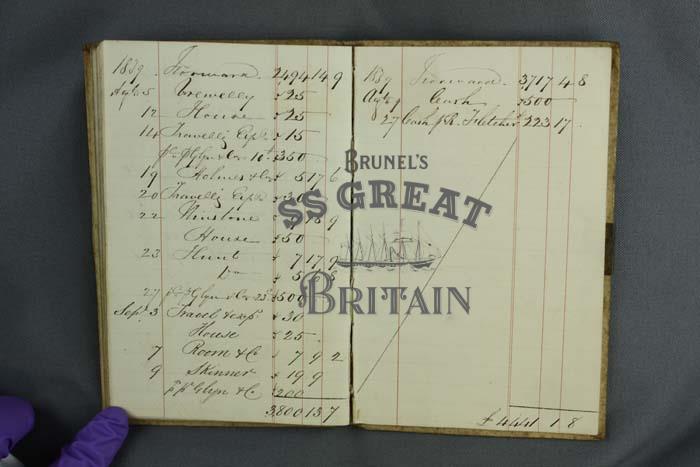 1839 Forward 2494 14 9
Agt 5 Crewelly 25
12 House 25
14 Travellg Exps 15
Glyn & Co 350
19 Holmes & Co 5 17 6
20 Travellg Exps 30
22 Winstone 9
House 50
23 Hunt 7 17 9
27 Glyn & Co 500
Sepr 3 Travel & exps 30
House 25
7 Room & Co 7 9 2
9 Skinner 19 9
Glyn & Co 200
3800 13 7
1839 Forward 3717 4 8
Agt 9 Cash 500
27 Cash R. Fletcher 223 17
£4441 1 8
BRUNEL'S
SS GREAT
BRITAIN